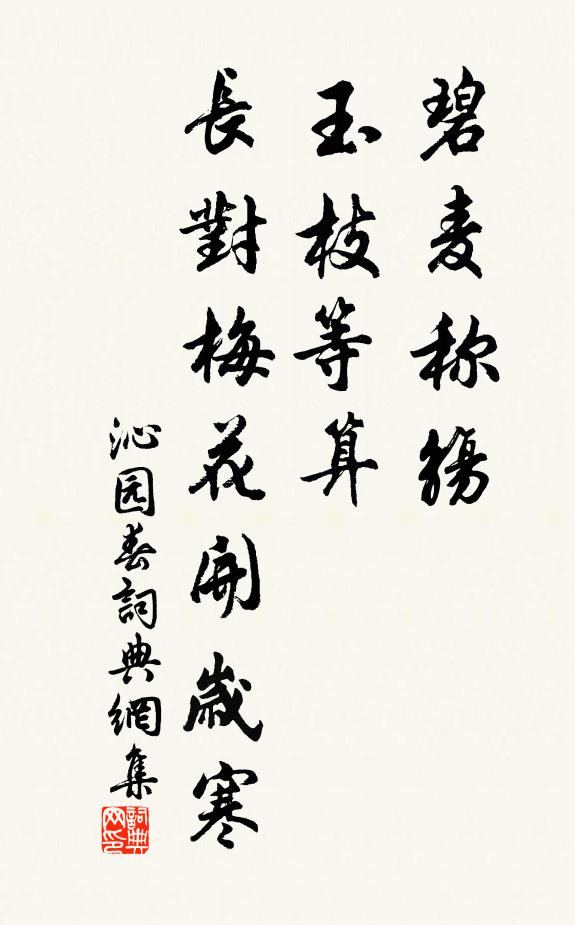 碧麦称觴
玉枝等算
長對梅花開歲寒
沁园春詞典網集
詞典网印